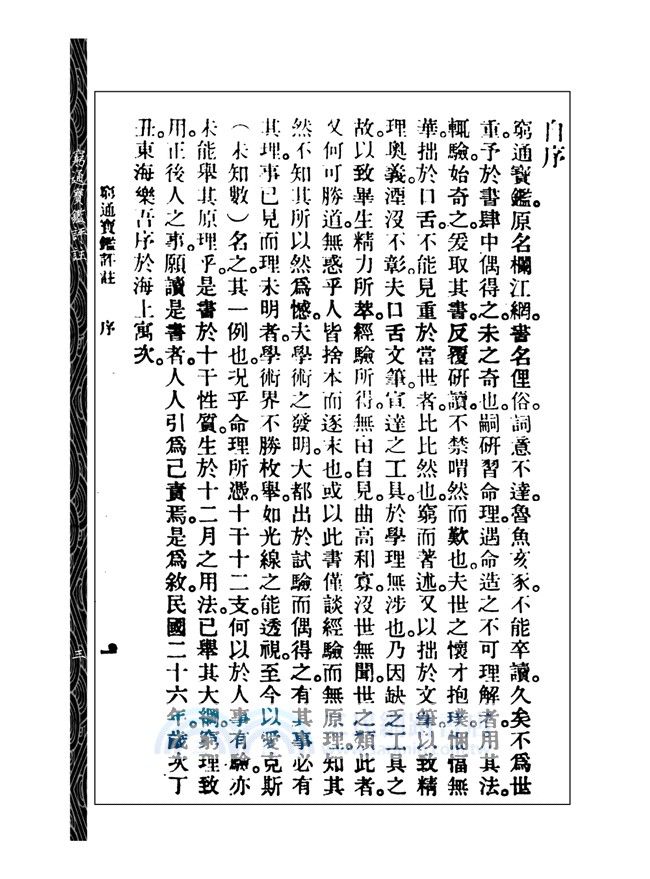 自序
窮通寶鑑。原名欄江網。書名俚俗。詞意不達。魯魚亥豕。不能卒讀。久矣不爲世
重。予於書肆中偶得之。未之奇也。嗣研習命理。遇命造之不可理解者。用其法。
輒驗。始奇之。爰取其書。反覆研讀。不禁喟然而歎也。夫世之懷才抱璞。悃愊無
華。拙於口舌。不能見重於當世者。比比然也。窮而著述。又以拙於文筆。以致精
理奧義。湮沒不彰。夫口舌文筆。宣達之工具。於學理無涉也。乃因缺乏工具之
故。以致畢生精力所萃。經驗所得。無由自見。曲高和寡。沒世無聞。世之類此者。
又何可勝道。無惑乎人皆捨本而逐末也。或以此書僅談經驗而無原理。知其
然不知其所以然爲憾。夫學術之發明。大都出於試驗而偶得之。有其事必有
其理。事已見而理未明者。學術界不勝枚舉。如光線之能透視。至今以愛克斯
（未知數）名之。其一例也。況乎命理所憑。十干十二支。何以於人事有驗。亦
未能舉其原理乎。是書於十干性質。生於十二月之用法。已舉其大綱。窮理致
用。正後人之事。願讀是書者。人人引爲己責焉。是爲敘。民國二十六年。歲次丁
丑。東海樂吾序於海上寓次。
窮通寶鑑評註 序
窮通寶鑑評註
三